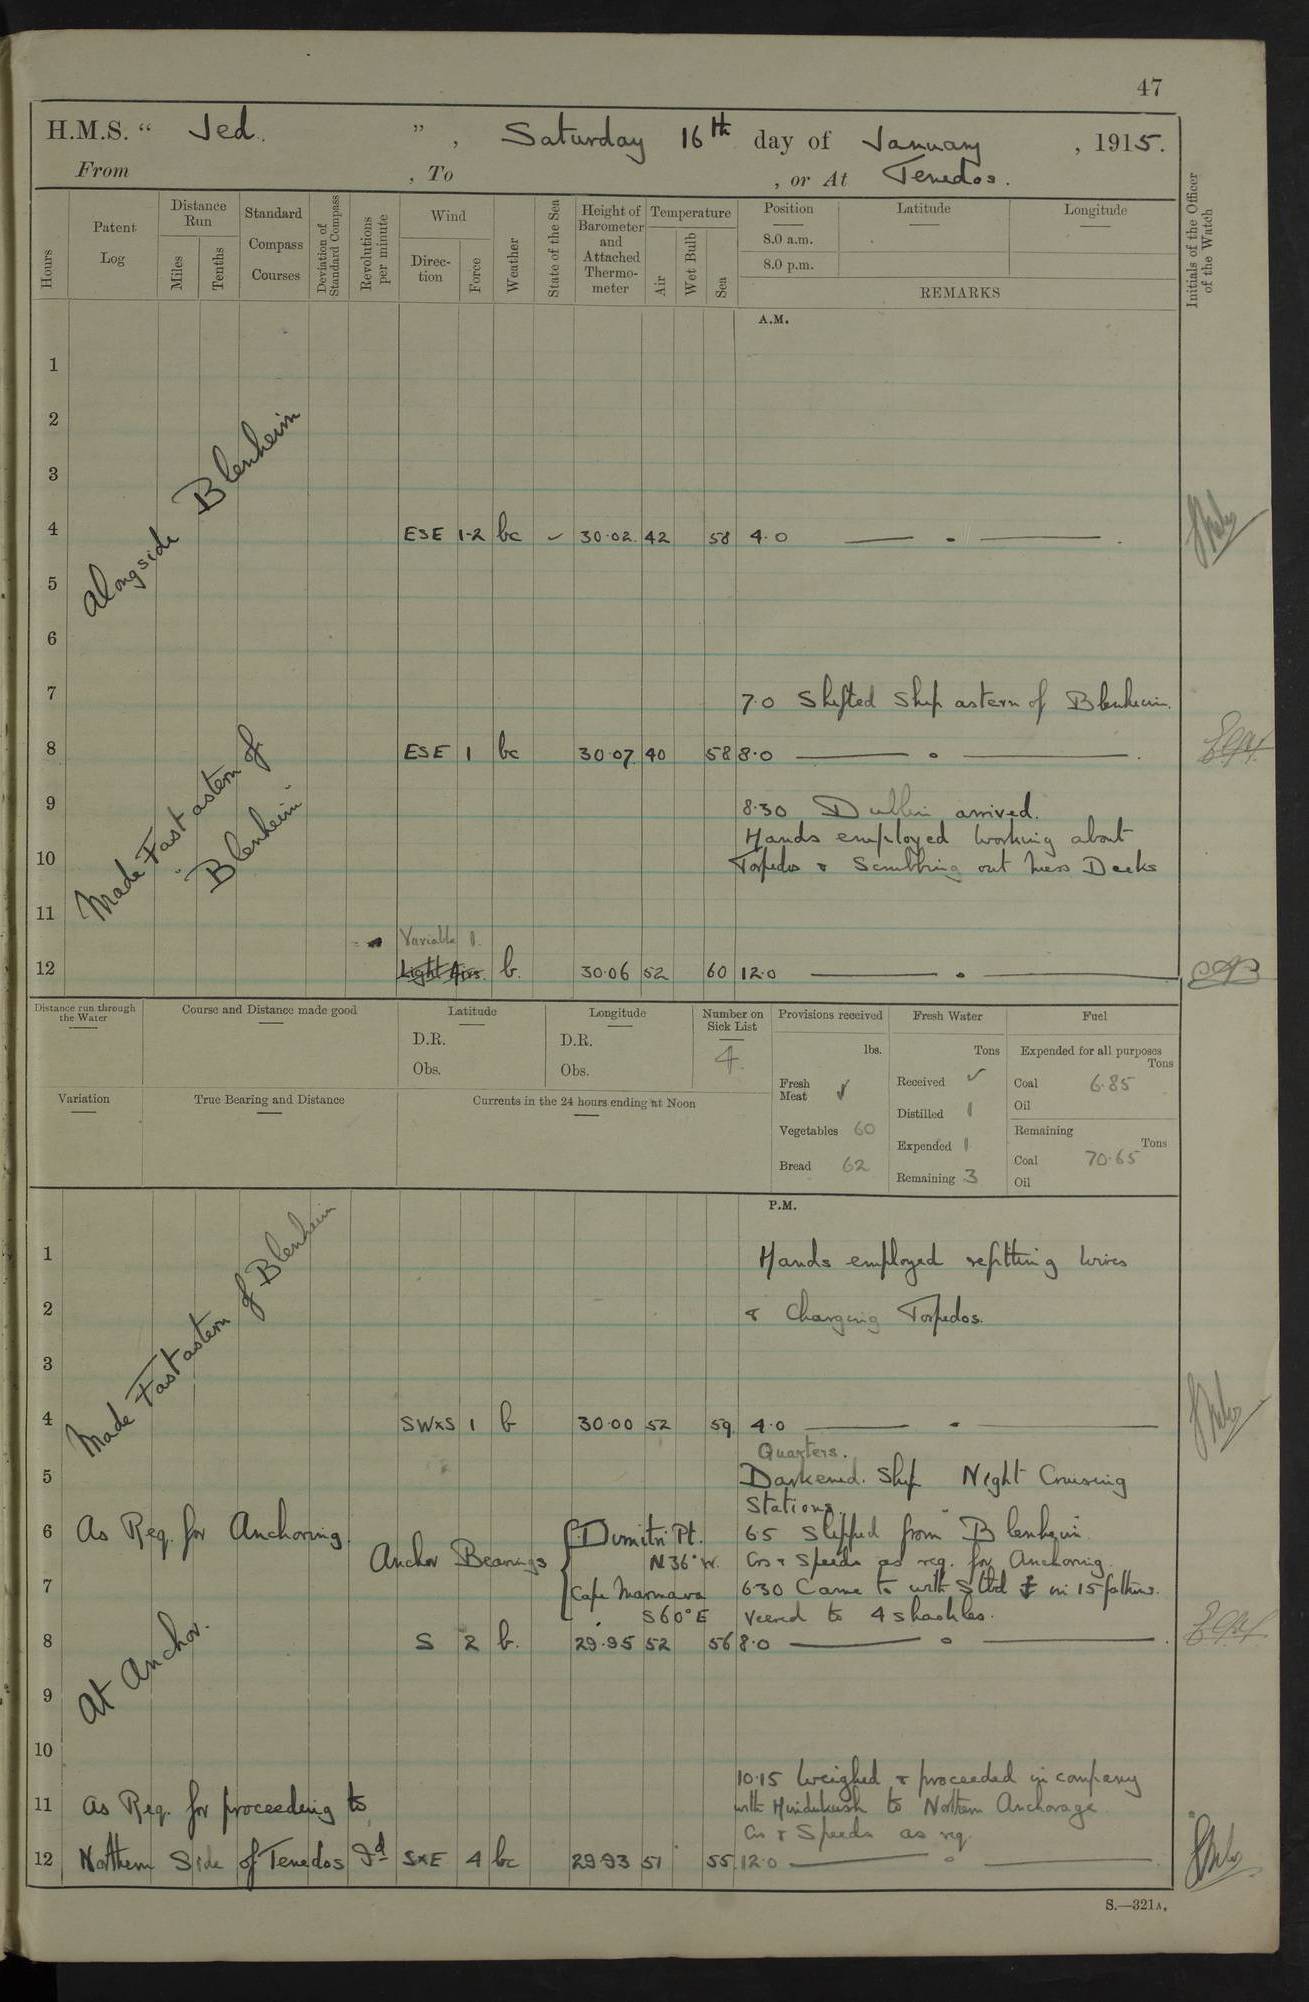 47
H.M.S. “ Jed. ” , Saturday 16th day of January , 1915.
From , To , or At Tenedos.
Hours
Patent Log
Distance Run
Miles
Tenths
Standard Compass Courses
Deviation of Standard Compass
Revolutions per minute
Wind
Direction
Force
Weather
State of the Sea
Height of Barometer and Attached Thermometer
Temperature
Air
Wet Bulb
Sea
Position
8.0 a.m.
8.0 p.m.
Latitude
Longitude
REMARKS
Initials of the Officer of the Watch
A.M.
1
2
3
Alongside Blenheim
4 ESE 1-2 bc ✓ 30·02 42 58 4·0 — . — .
5
6
7 7·0 Shifted Ship astern of Blenheim.
8 ESE 1 bc 30·07 40 58 8·0 — . — .
Made Fast astern of
"Blenheim"
9 8·30 Dublin arrived.
Hands employed working about
10 Torpedos & Scrubbing out Mess Decks
11
Variable 1.
12 Light Airs. b. 30·06 52 60 12·0 — . —
Distance run through the Water
Course and Distance made good
Latitude
D.R.
Obs.
Longitude
D.R.
Obs.
Number on Sick List
4
Provisions received
lbs.
Fresh Meat ✓
Vegetables 60
Bread 62
Fresh Water
Tons
Received ✓
Distilled 1
Expended 1
Remaining 3
Fuel
Expended for all purposes
Tons
Coal 6·85
Oil
Remaining
Tons
Coal 70·65
Oil
Variation
True Bearing and Distance
Currents in the 24 hours ending at Noon
P.M.
Made Fast astern of Blenheim
1 Hands employed refitting wires
2 & Charging Torpedos.
3
4 SWxS 1 b 30·00 52 59 4·0 — . —
Quarters.
5 Darkened Ship Night Cruising
Stations.
6 As Req. for Anchoring. Dimitri Pt. 6·5 Slipped from Blenheim
Anchor Bearings N36°W. Cos & Speeds as req. for Anchoring
7 Cape Marmara 6·30 Came to with Stbd ⚓ in 15 fathoms.
S60°E Veered to 4 shackles.
8 S 2 b. 29·95 52 56 8·0 — . — .
At Anchor.
9
10
10·15 Weighed & proceeded in company
11 As Req. for proceeding to with Hindukush to Northern Anchorage
Cos & Speeds as req.
12 Northern Side of Tenedos Id SxE 4 bc 29·93 51 55 12·0 — . —
S.—321A.